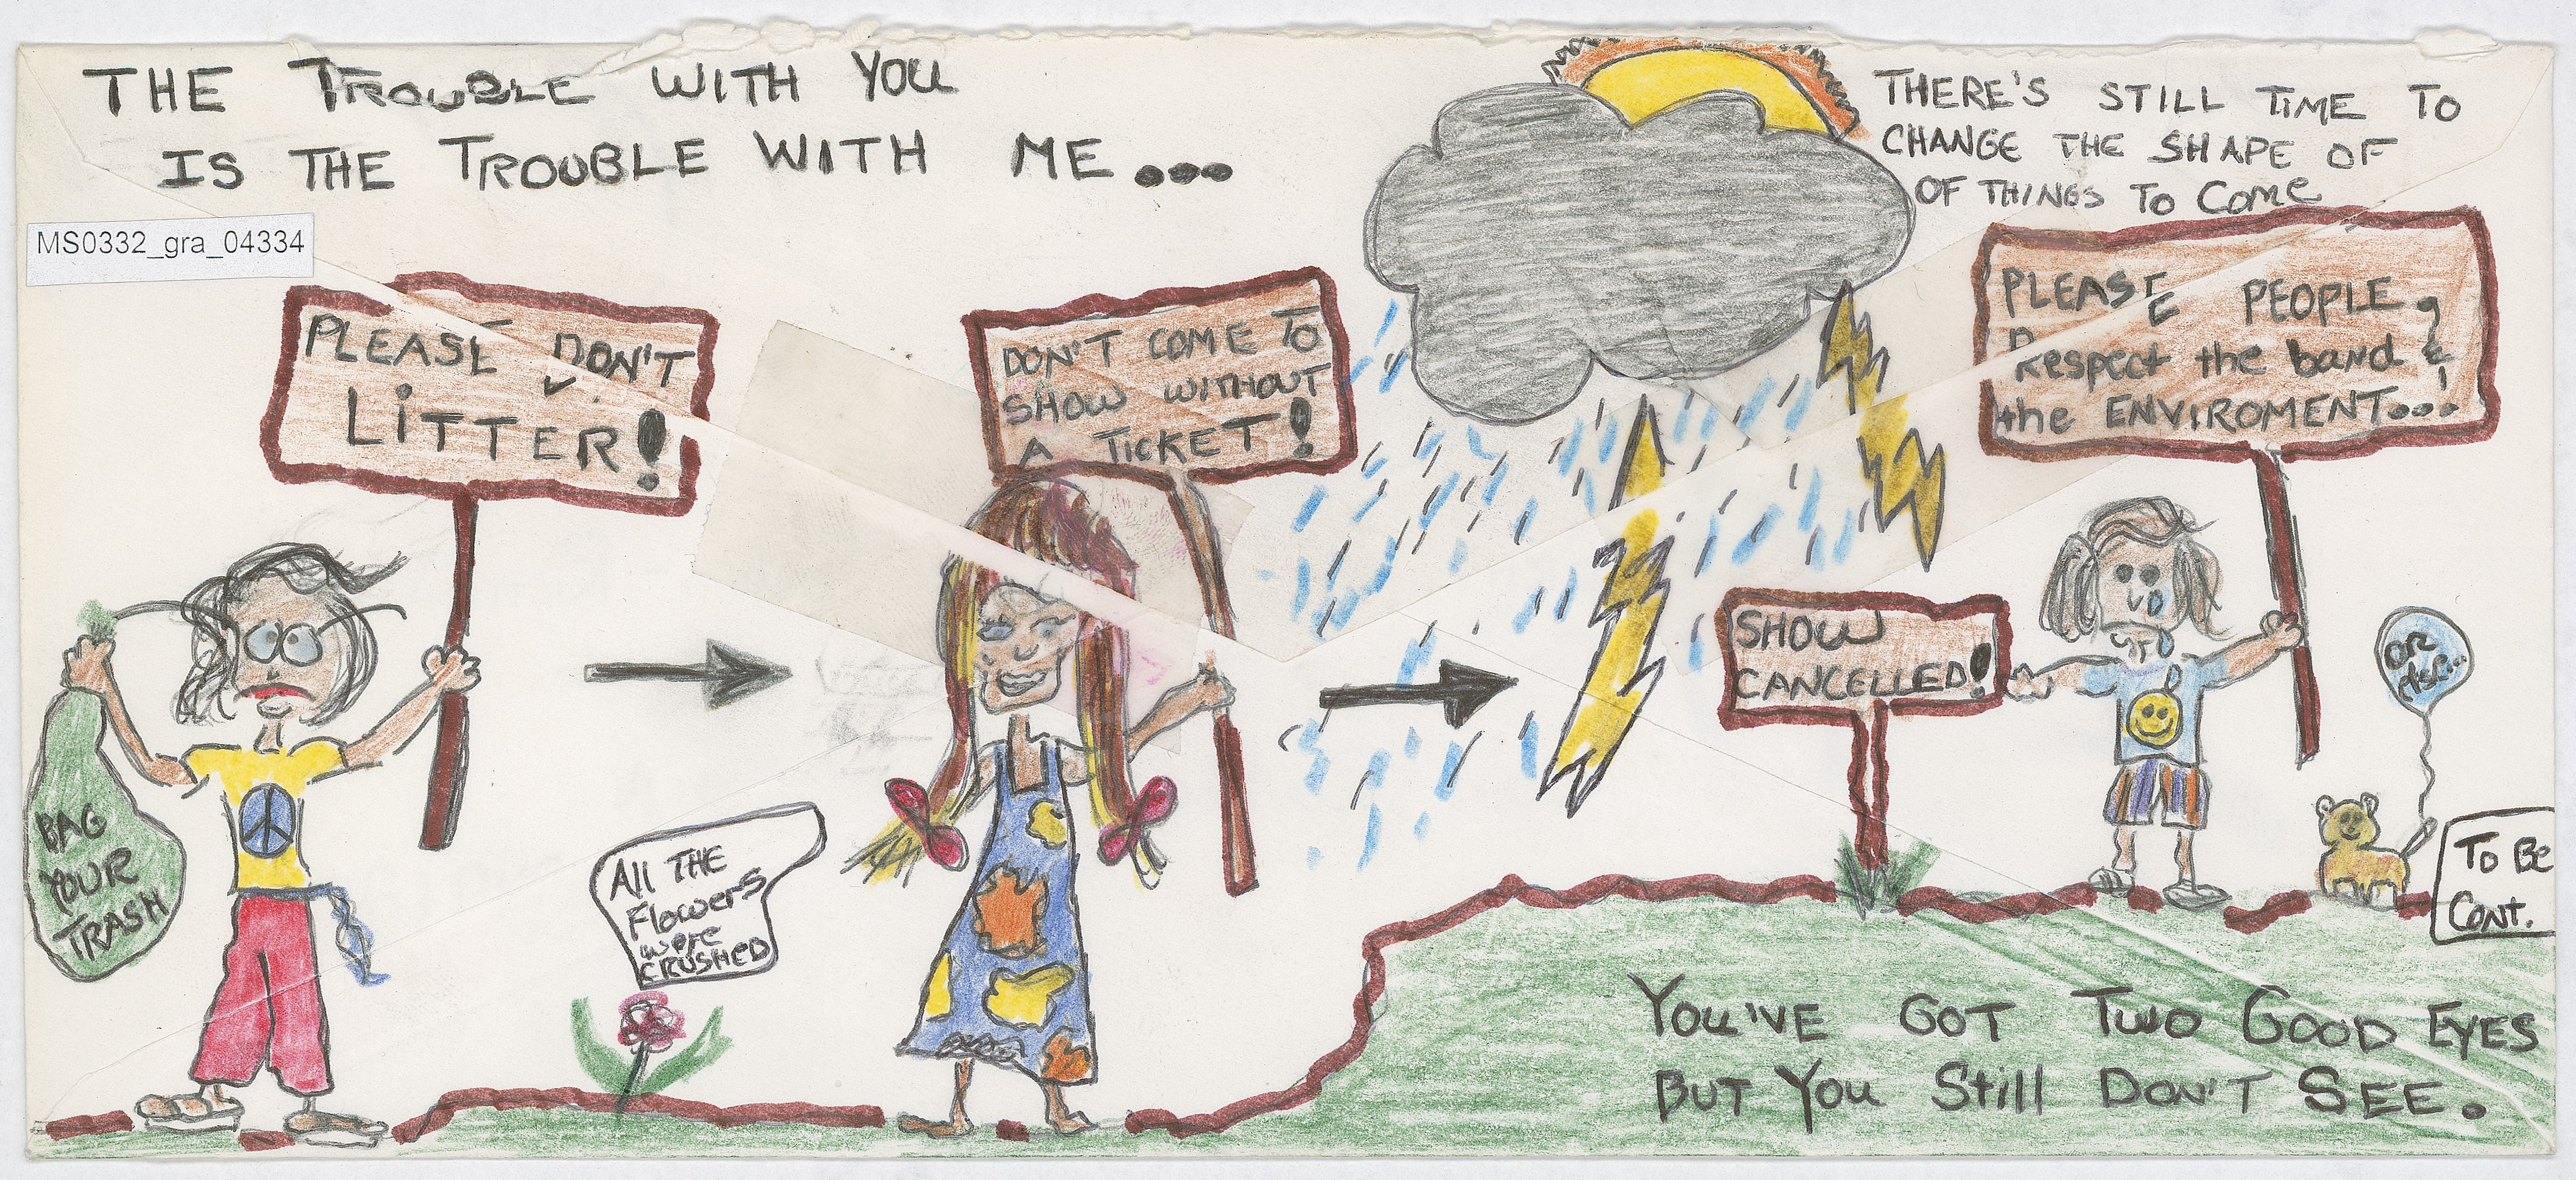 THE TROUBLE WITH YOU
IS THE TROUBLE WITH ME...
THERE'S STILL TIME TO
CHANGE THE SHAPE OF
OF THINGS TO COME
MS0332_gra_04334
PLEASE DON'T
LITTER!
DON'T COME TO
SHOW WITHOUT
A TICKET!
PLEASE PEOPLE,
Respect the band &
the ENVIROMENT...!
SHOW
CANCELLED!
OR
else...
BAG
YOUR
TRASH
All THE
Flowers
were
CRUSHED
TO BE
CONT.
YOU'VE GOT TWO GOOD EYES
BUT YOU Still DON'T SEE.